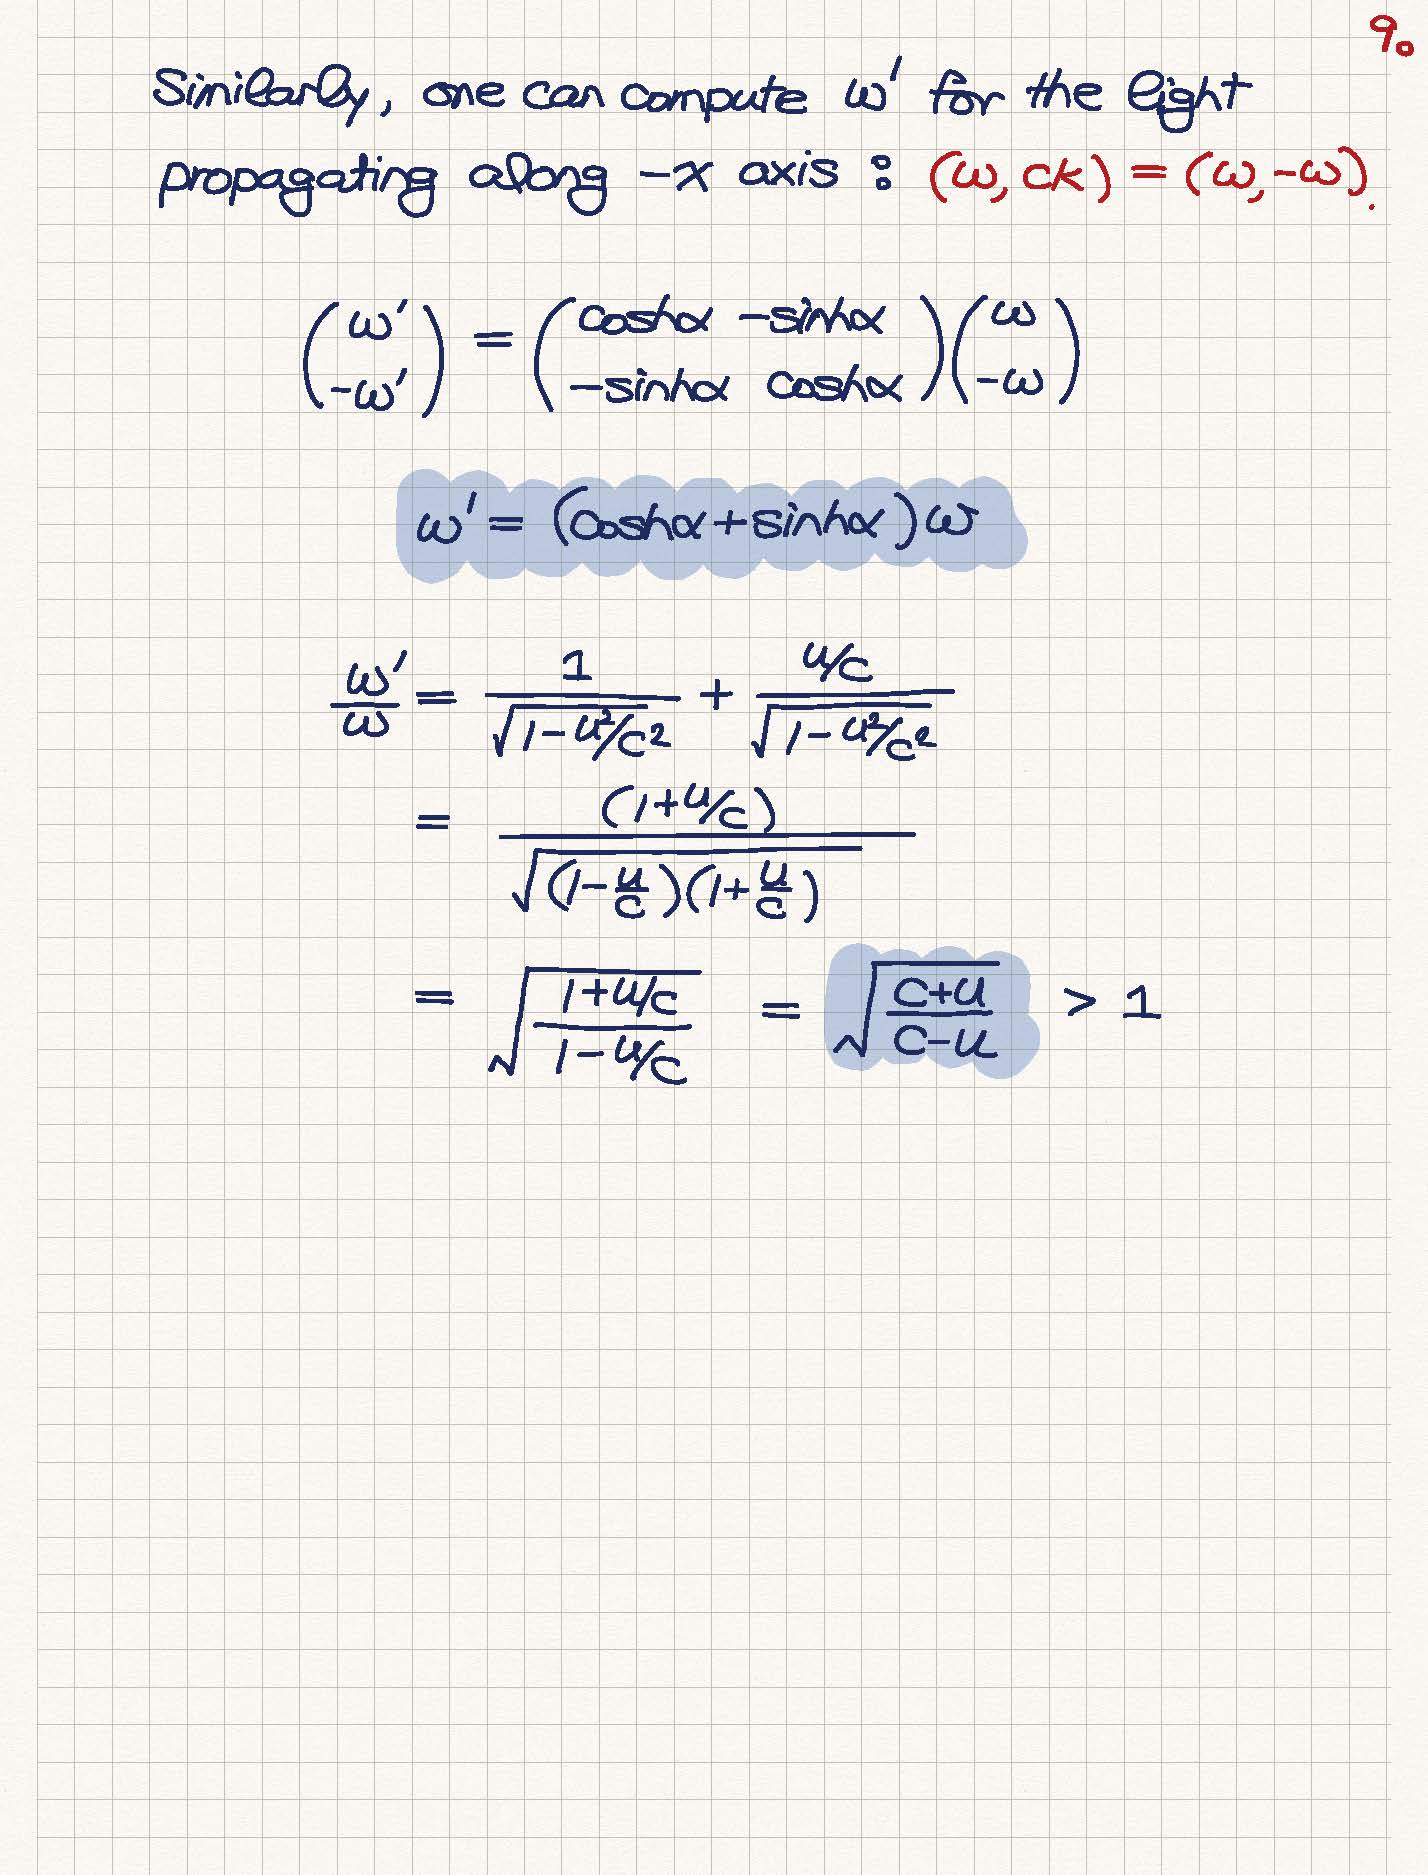 9.
Similarly, one can compute ω' for the light
propagating along -x axis : (ω, ck) = (ω, -ω).
(ω' -ω') = (coshα -sinhα -sinhα coshα)(ω -ω)
ω' = (coshα + sinhα)ω
ω'/ω = 1/√(1-u²/c²) + (u/c)/√(1-u²/c²)
= (1+u/c)/√((1-u/c)(1+u/c))
= √((1+u/c)/(1-u/c)) = √((c+u)/(c-u)) > 1